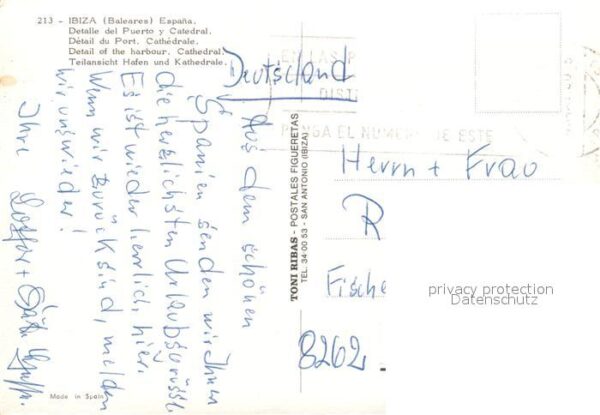 213 - IBIZA (Baleares) España.
Detalle del Puerto y Catedral.
Détail du Port. Cathédrale.
Detail of the harbour. Cathedral.
Teilansicht Hafen und Kathedrale.
Deutschland
EN LAS
DIST
PONGA EL NUMERO DE ESTE
Aus dem schönen
Spanien senden wir Ihnen
die herzlichsten Urlaubsgrüsse.
Es ist wieder herrlich, hier.
Wenn wir zurück sind, melden
wir uns wieder!
Ihre
TONI RIBAS - POSTALES FIGUERETAS
TEL. 34 00 53 - SAN ANTONIO (IBIZA)
Herrn + Frau
R
Fische
8262
privacy protection
Datenschutz
Made in Spain